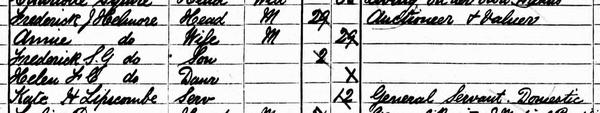 Frederick J Helmore Head M 29 Auctioneer & Valuer
Annie do Wife M 29
Frederick S.G do Son 2
Helen F C do Daur
Kate H Lipscombe Serv 12 General Servant. Domestic